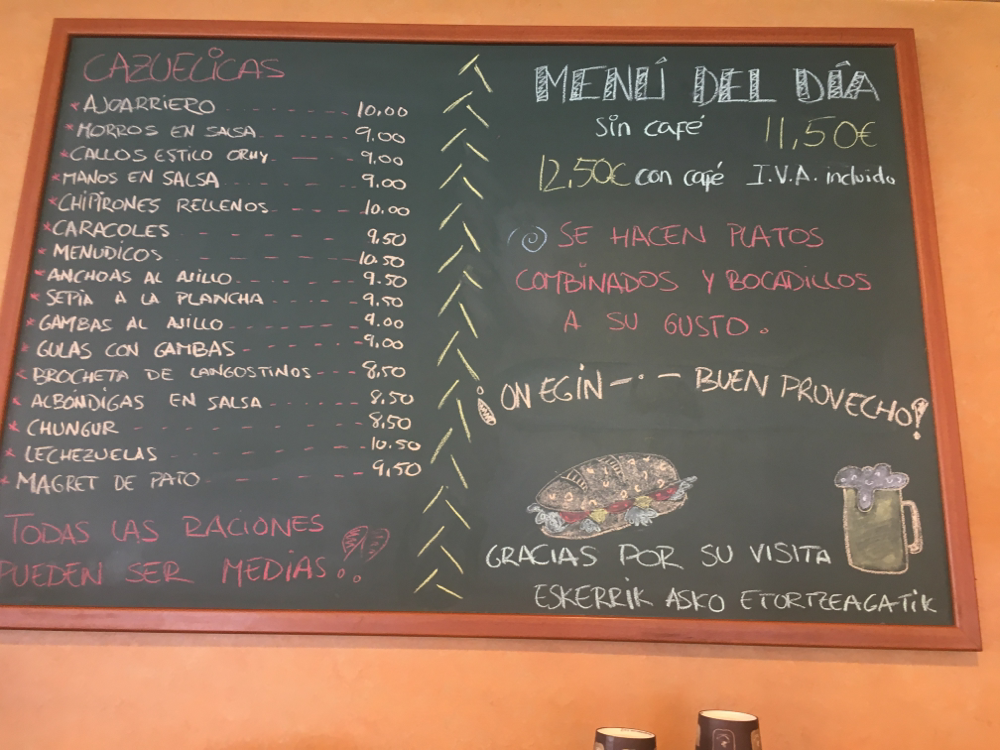 CAZUELICAS
* AJOARRIERO - - - - - - 10,00
* MORROS EN SALSA - - - - 9.00
* CALLOS ESTILO ORHY - - - 9,00
* MANOS EN SALSA - - - - - 9.00
* CHIPIRONES RELLENOS - - - 10.00
* CARACOLES - - - - - 9,50
* MENUDICOS - - - - - 10.50
* ANCHOAS AL AJILLO - - - - 9.50
* SEPIA A LA PLANCHA - - - - 9,50
* GAMBAS AL AJILLO - - - - - 9.00
* GULAS CON GAMBAS - - - - - 9,00
* BROCHETA DE LANGOSTINOS - - - 8,50
* ALBÓNDIGAS EN SALSA - - - - 8.50
* CHUNGUR - - - - - - 8,50
* LECHEZUELAS - - - - - - 10.50
* MAGRET DE PATO - - - - - - 9,50
TODAS LAS RACIONES
PUEDEN SER MEDIAS..!!
MENÚ DEL DÍA
Sin café 11,50€
12,50€ con café I.V.A. incluido
SE HACEN PLATOS
COMBINADOS Y BOCADILLOS
A SU GUSTO.
¡ON EGIN -·- BUEN PROVECHO!
GRACIAS POR SU VISITA
ESKERRIK ASKO ETORTZEAGATIK